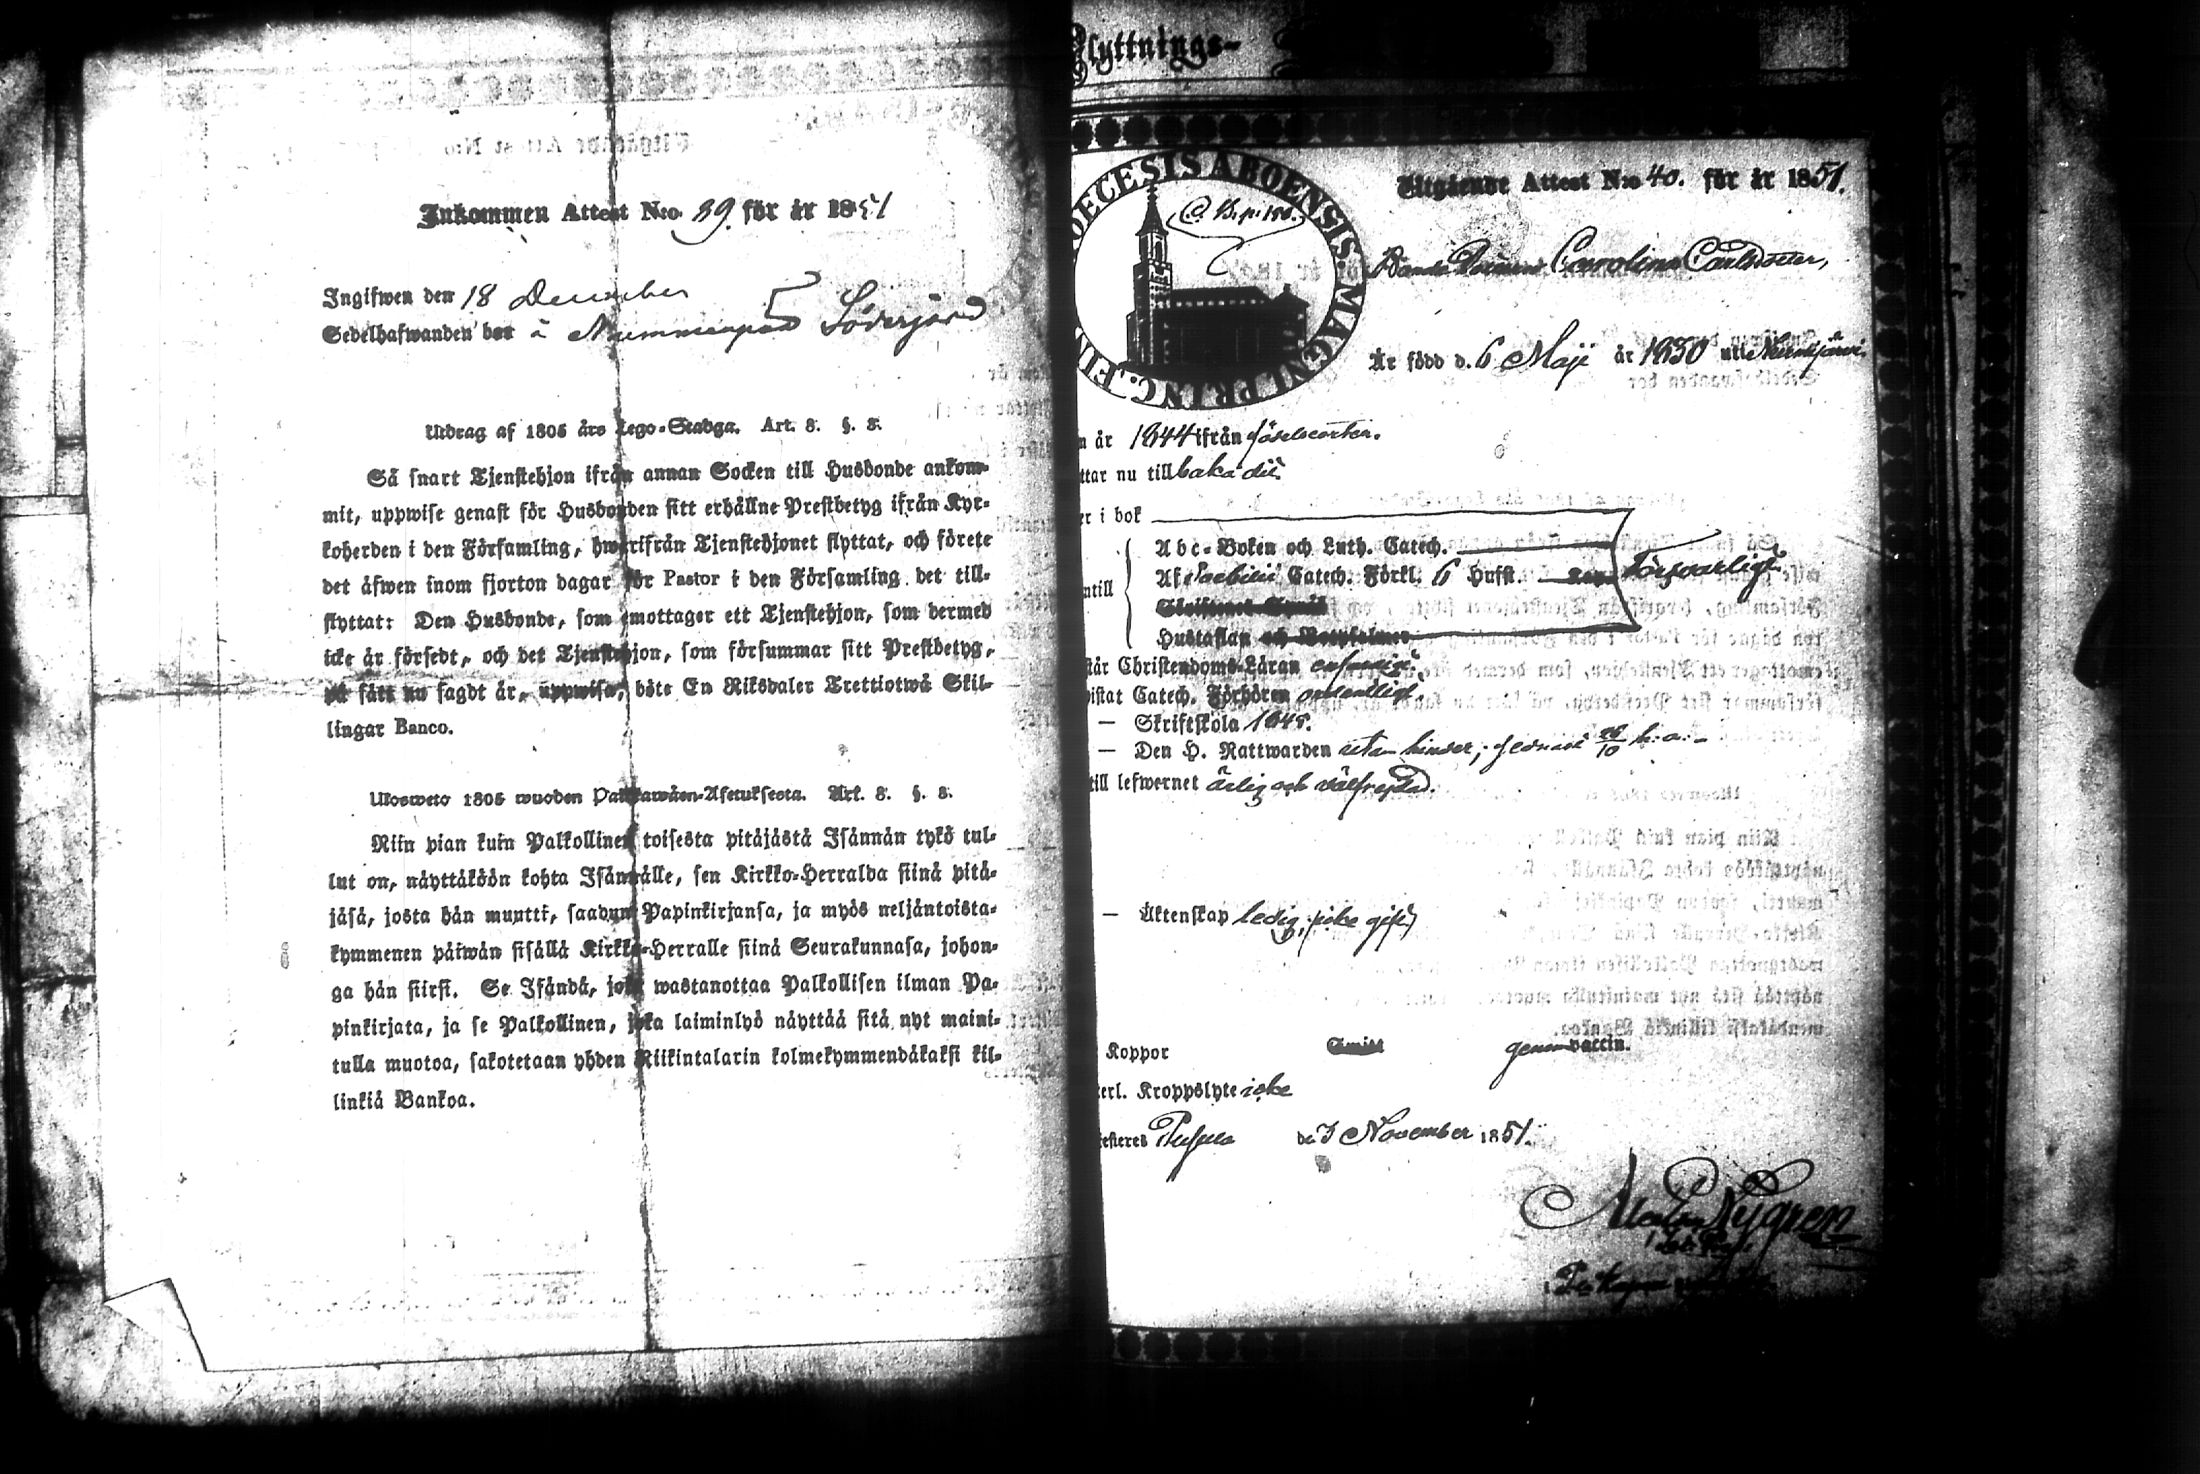 Inkommen Attest N:o 39. för år 1851
Ingifwen den 18 December
Sedelhafwanden bor å Nummenpää Södergård
Utdrag af 1805 års Lego-Stadga. Art. 8. §. 8.
Så snart Tjenstehjon ifrån annan Socken till Husbonde ankom-
mit, uppwise genast för Husbonden sitt erhållne Prestbetyg ifrån Kyr-
koherden i den Församling, hwarifrån Tjenstehjonet flyttat, och förete
det äfwen inom fjorton dagar för Pastor i den Församling det till-
flyttat: Den Husbonde, som emottager ett Tjenstehjon, som dermed
icke är försedt, och det Tjenstehjon, som försummar sitt Prestbetyg,
på sätt nu sagdt är, uppwisa, böte En Riksdaler Trettiotwå Skil-
lingar Banco.
Ulosweto 1805 wuoden Palkkawäen-Asetuksesta. Art. 8. §. 8.
Niin pian kuin Palkollinen toisesta pitäjästä Isännän tykö tul-
lut on, näyttäköön kohta Isännälle, sen Kirkko-Herralda siinä pitä-
jäsä, josta hän muutti, saadun Papinkirjansa, ja myös neljäntoista-
kymmenen päiwän sisällä Kirkko-Herralle siinä Seurakunnasa, johon-
ga hän siirsi. Se Isändä, joka wastanottaa Palkollisen ilman Pa-
pinkirjata, ja se Palkollinen, joka laiminlyö näyttää sitä nyt maini-
tulla muotoa, sakotetaan yhden Riikintalarin kolmekymmendäkaksi kil-
linkiä Bankoa.
Flyttnings-
DIOECESIS ABOENSIS. MAGNI PRINC. FIN
C. B. p. 186.
Utgående Attest N:o 40. för år 1851.
Bonde Carolina Carlsdotter,
Är född d. 6 Maji år 1830 uti Nurmijärvi
n år 1844 ifrån
ttar nu tillbaka dit.
er i bok
ntill
Abc-Boken och Luth. Catech.
Af Svebilii Catech. Förkl. 6 Hufst. försvarligt
Hustaflan och Botpsalmer
står Christendoms-Läran
wistat Catech. Förhören ordentligt.
— Skriftskola 1845.
— Den H. Nattwarden utan hinder, senast 26/10 h. a.
till lefwernet ärlig och välfrejdad.
— Äktenskap ledig, icke gift,
Koppor genom vaccin.
terl. Kroppslyte icke
testeres Pusula d. 3 November 1851.
Nygren